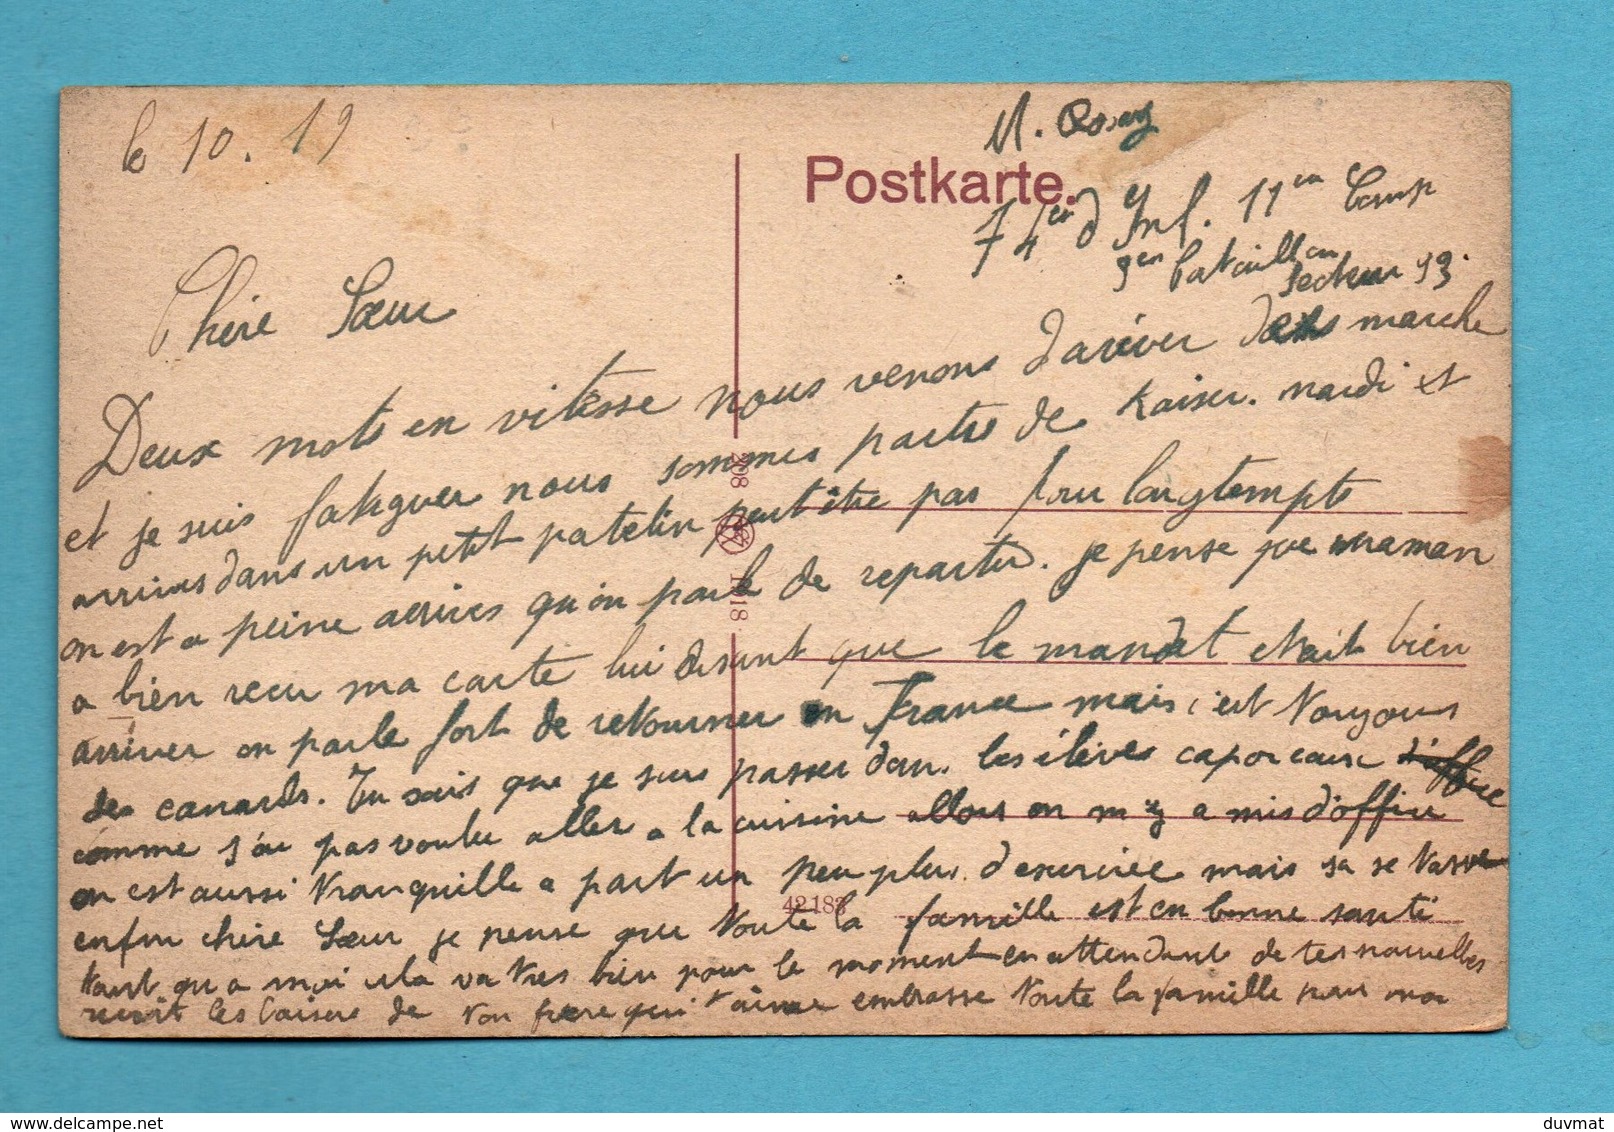 le 10. 19
M.
Postkarte.
74em d Inf. 11em Comp
3em bataillon
secteur 93.
Chère Sœur
Deux mots en vitèsse nous venons d'ariver dans marche
et je suis fatiguer nous sommes partis de Kaiser. mardi et
arrivés dans un petit patelin peut être pas pour longtempts
on est a peine arrivés qu'on parle de repartir. je pense que maman
a bien recu ma carte lui disant que le mandat etait bien
arriver on parle fort de retourner en France mais c'est toujours
des canards. Tu sais que je suis passer dans les élèves caporeaux d'office
comme j'ai pas voulu aller a la cuisine alors on m'y a mis d'office
on est aussi tranquille a part un peu plus d'exercice mais sa se tasse
enfin chère Sœur je pense que toute la famille est en bonne santé
tant qu a moi cela va très bien pour le moment en attendant de tes nouvelles
recoit les baisers de ton frère qui t'aime embrasse toute la famille pour moi
208
1918
42183
duvmat